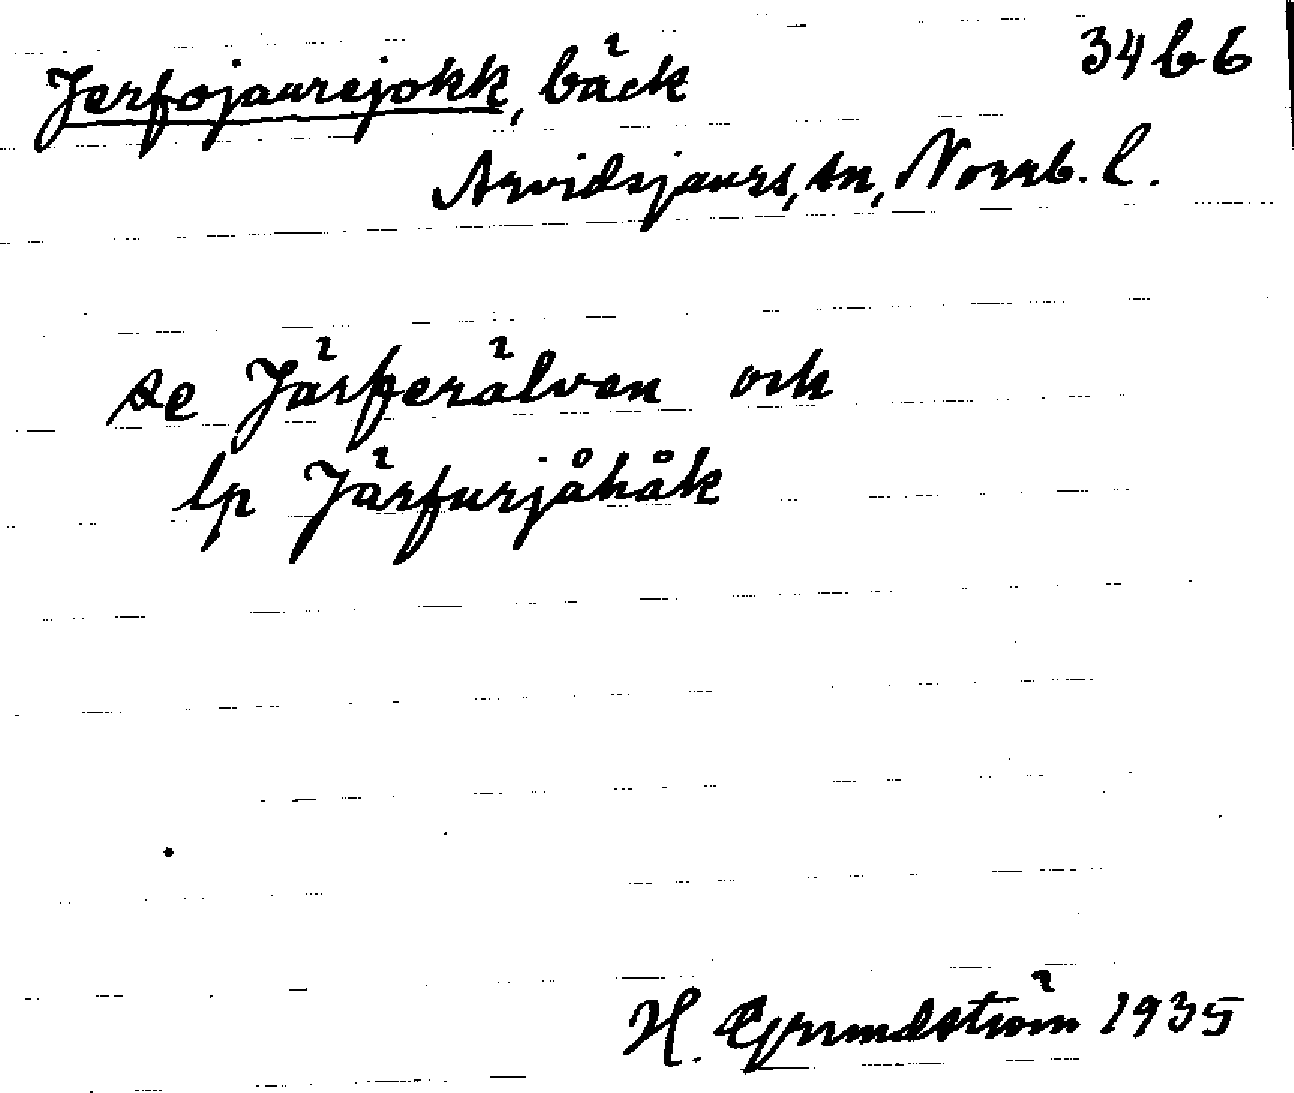 Jerfojaurejokk, bäck 34 b 6
Arvidsjaurs, sn, Norrb. l.
se Järfverälven och
lp Järfurjåhåk
H. Grundström 1935